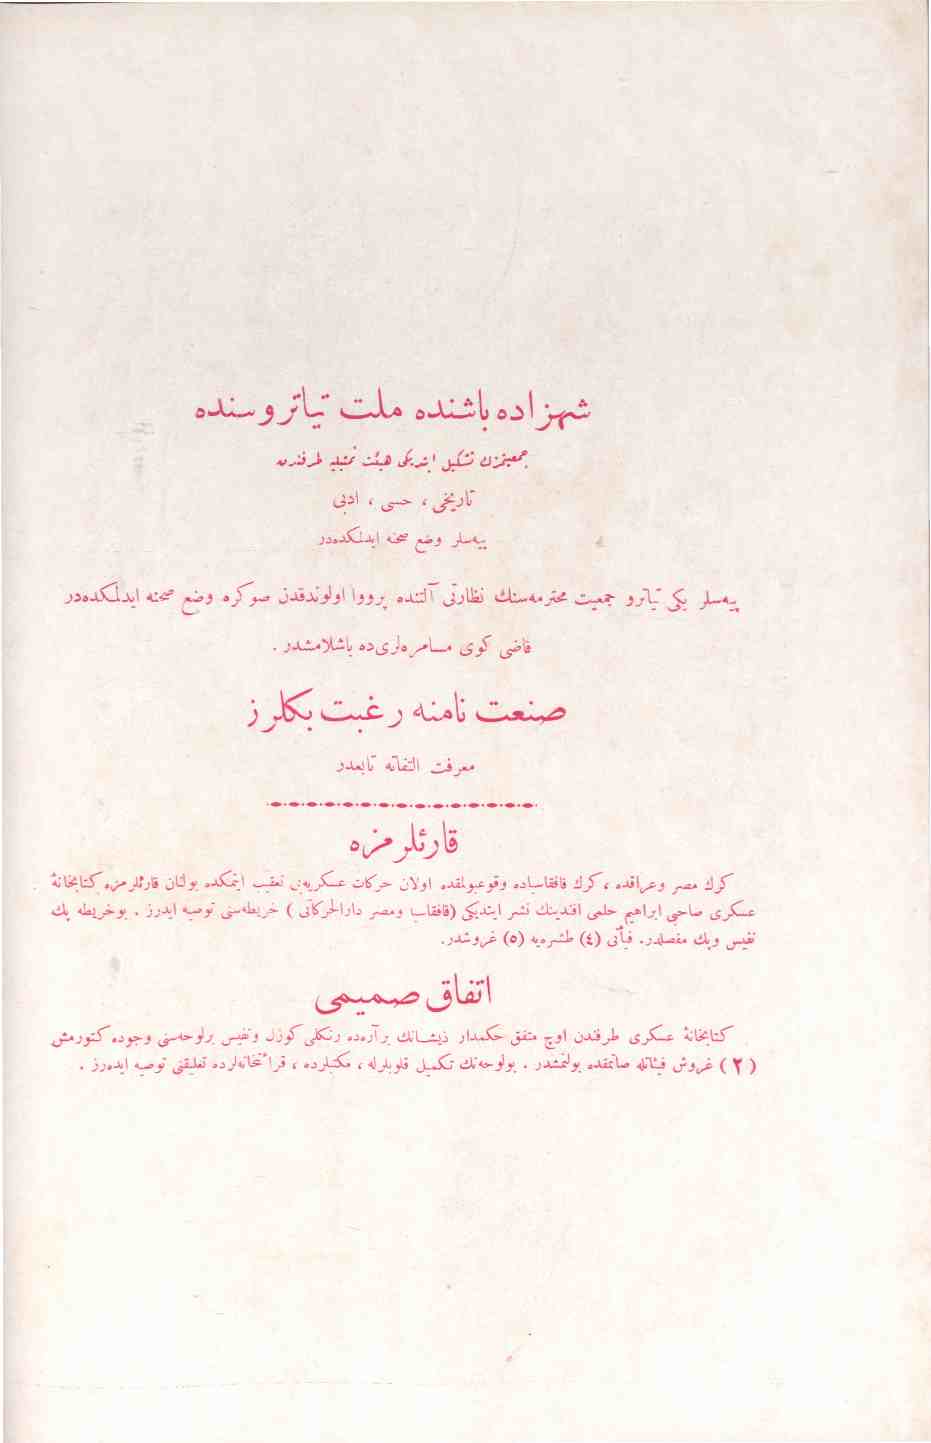 شهزاده باشنده ملت تیاتروسنده
جمعیتمزك تشكیل ایتدیكی هیئت تمثیلیه طرفندن
تاریخی ، حسی ، ادبی
پیه‌سلر وضع صحنه ایدلمكده‌در
پیه‌سلر یكی تیاترو جمعیت محترمه‌سنك نظارتی آلتنده پرووا اولوندقدن صوكره وضع صحنه ایدلمكده‌در
قاضی كوی مسامره‌لری ده باشلامشدر .
صنعت نامنه رغبت بكلرز
معرفت التفاته تابعدر
قارئلرمزه
كرك مصر وعراقده ، كرك قافقاسیاده وقوعبولمقده اولان حركات عسكریه‌یی تعقیب ایتمكده بولنان قارئلرمزه كتابخانهٔ
عسكری صاحبی ابراهیم حلمی افندینك نشر ایتدیكی (قافقاسیا ومصر دارالحركاتی ) خریطه‌سنی توصیه ایدرز . بوخریطه پك
نفیس وپك مفصلدر. فیأتی (٤) طشره‌یه (٥) غروشدر.
اتفاق صمیمی
كتابخانهٔ عسكری طرفندن اوچ متفق حكمدار ذیشانك برآره‌ده رنكلی كوزل ونفیس برلوحه‌سنی وجوده كتورمش
(٢) غروش فیئاتله صاتمقده بولنمشدر . بولوحه‌نك تكمیل قلوبلرله ، مكتبلرده ، قرائتخانه‌لرده تعلیقنی توصیه ایده‌رز .